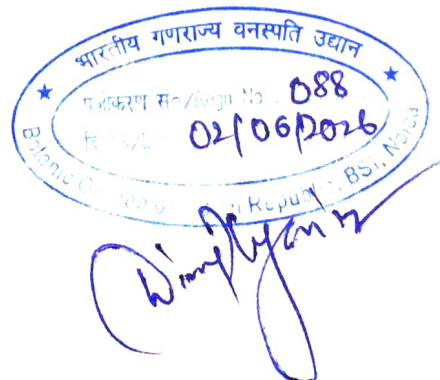 भारतीय गणराज्य वनस्पति उद्यान
पंजीकरण सं०/Regn No. 088
02/06/2026
Botanic Garden of Indian Republic, BSI, Noida